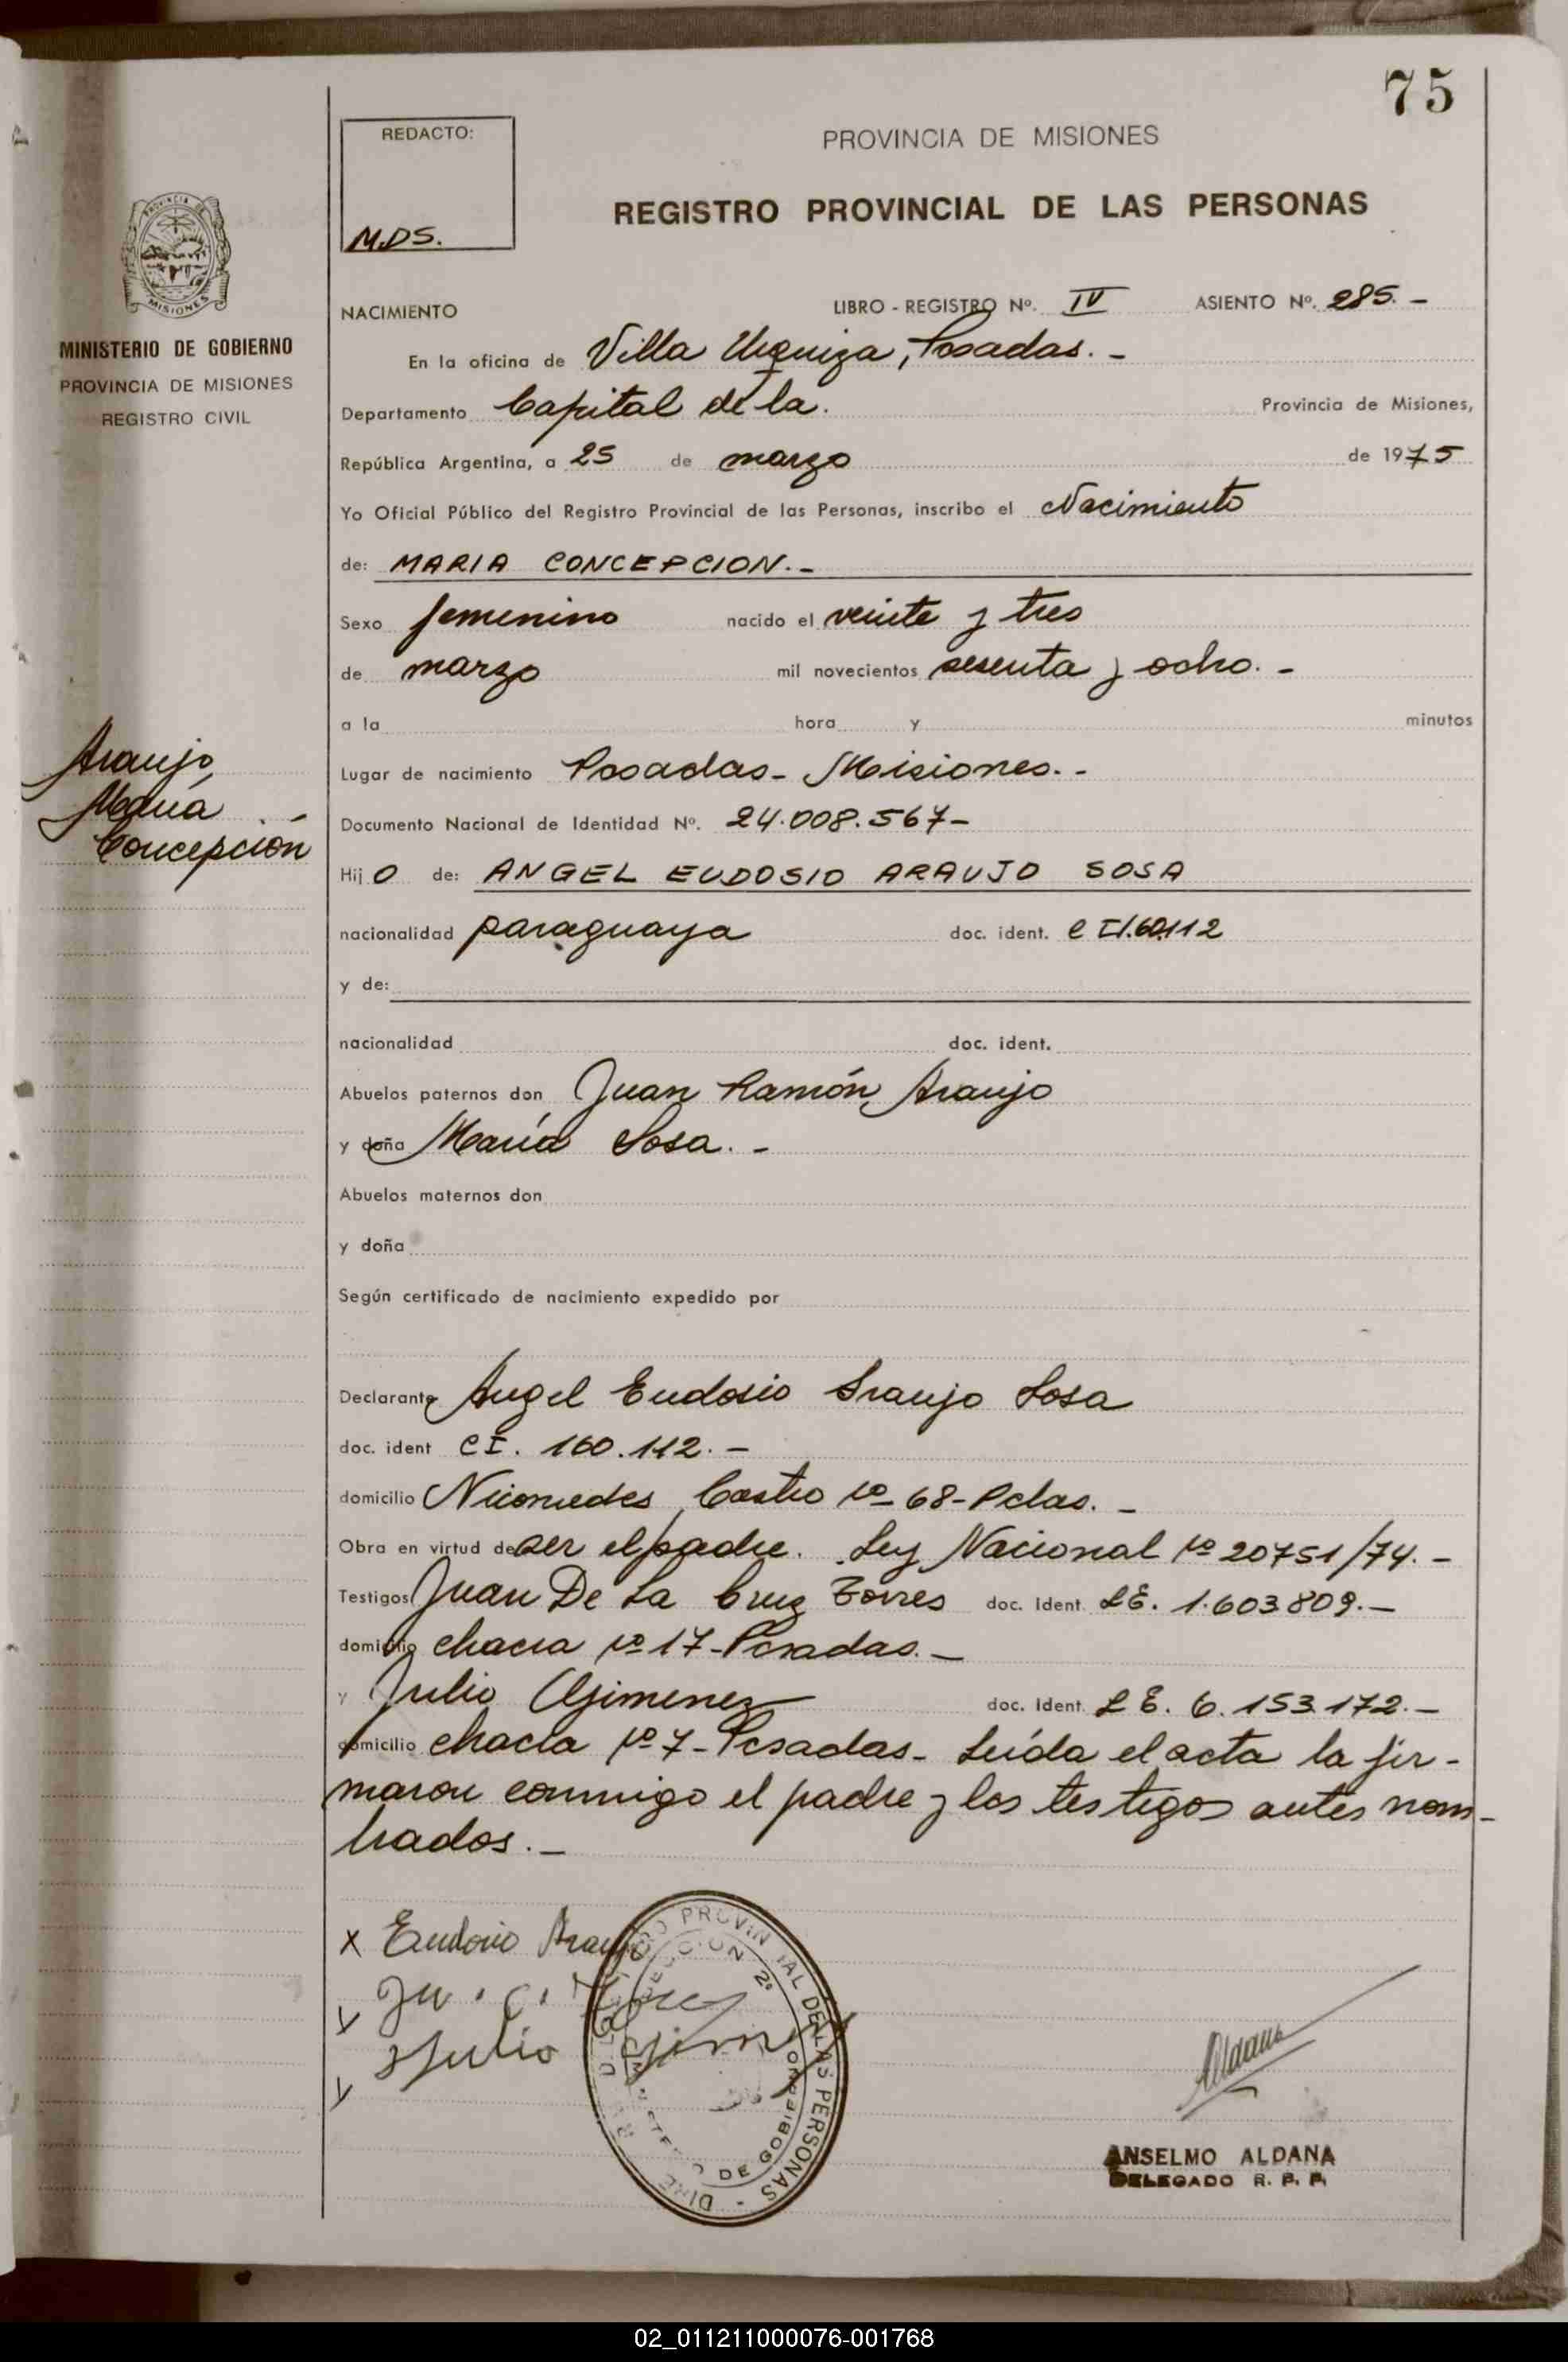 75
REDACTO:
M.D.S.
PROVINCIA DE MISIONES
REGISTRO PROVINCIAL DE LAS PERSONAS
PROVINCIA DE
MISIONES
MINISTERIO DE GOBIERNO
PROVINCIA DE MISIONES
REGISTRO CIVIL
NACIMIENTO LIBRO - REGISTRO Nº. IV ASIENTO Nº. 285. -
En la oficina de Villa Urquiza, Posadas. -
Departamento Capital de la. Provincia de Misiones,
República Argentina, a 25 de marzo de 1975
Yo Oficial Público del Registro Provincial de las Personas, inscribo el Nacimiento
de: MARIA CONCEPCION. -
Sexo femenino nacido el veinte y tres
de marzo mil novecientos sesenta y ocho. -
a la hora y minutos
Araujo
María
Concepción
Lugar de nacimiento Posadas - Misiones. -
Documento Nacional de Identidad Nº. 24.008.567-
Hij O de: ANGEL EUDOSIO ARAUJO SOSA
nacionalidad paraguaya doc. ident. CI.160.112
y de:
nacionalidad doc. ident.
Abuelos paternos don Juan Ramón Araujo
y doña María Sosa. -
Abuelos maternos don
y doña
Según certificado de nacimiento expedido por
Declarante Angel Eudosio Araujo Sosa
doc. ident CI. 160.112. -
domicilio Nicomedes Castro Nº 68 - Pdas. -
Obra en virtud de ser el padre. Ley Nacional Nº 20751/74. -
Testigos Juan De La Cruz Torres doc. Ident. L.E. 1.603.809. -
domicilio chacra Nº 17 - Posadas. -
y Julio Gimenez doc. Ident. L.E. 6.153.172. -
domicilio chacra Nº 7 - Posadas - Leída el acta la fir-
maron conmigo el padre y los testigos antes nom-
brados. -
x Eudosio Araujo
Ju. C. Torres
Julio Gimenez
PROVINCIAL DE LAS PERSONAS
SECCION 2ª
MINISTERIO DE GOBIERNO
Aldana
ANSELMO ALDANA
DELEGADO R. P. P.
02_011211000076-001768